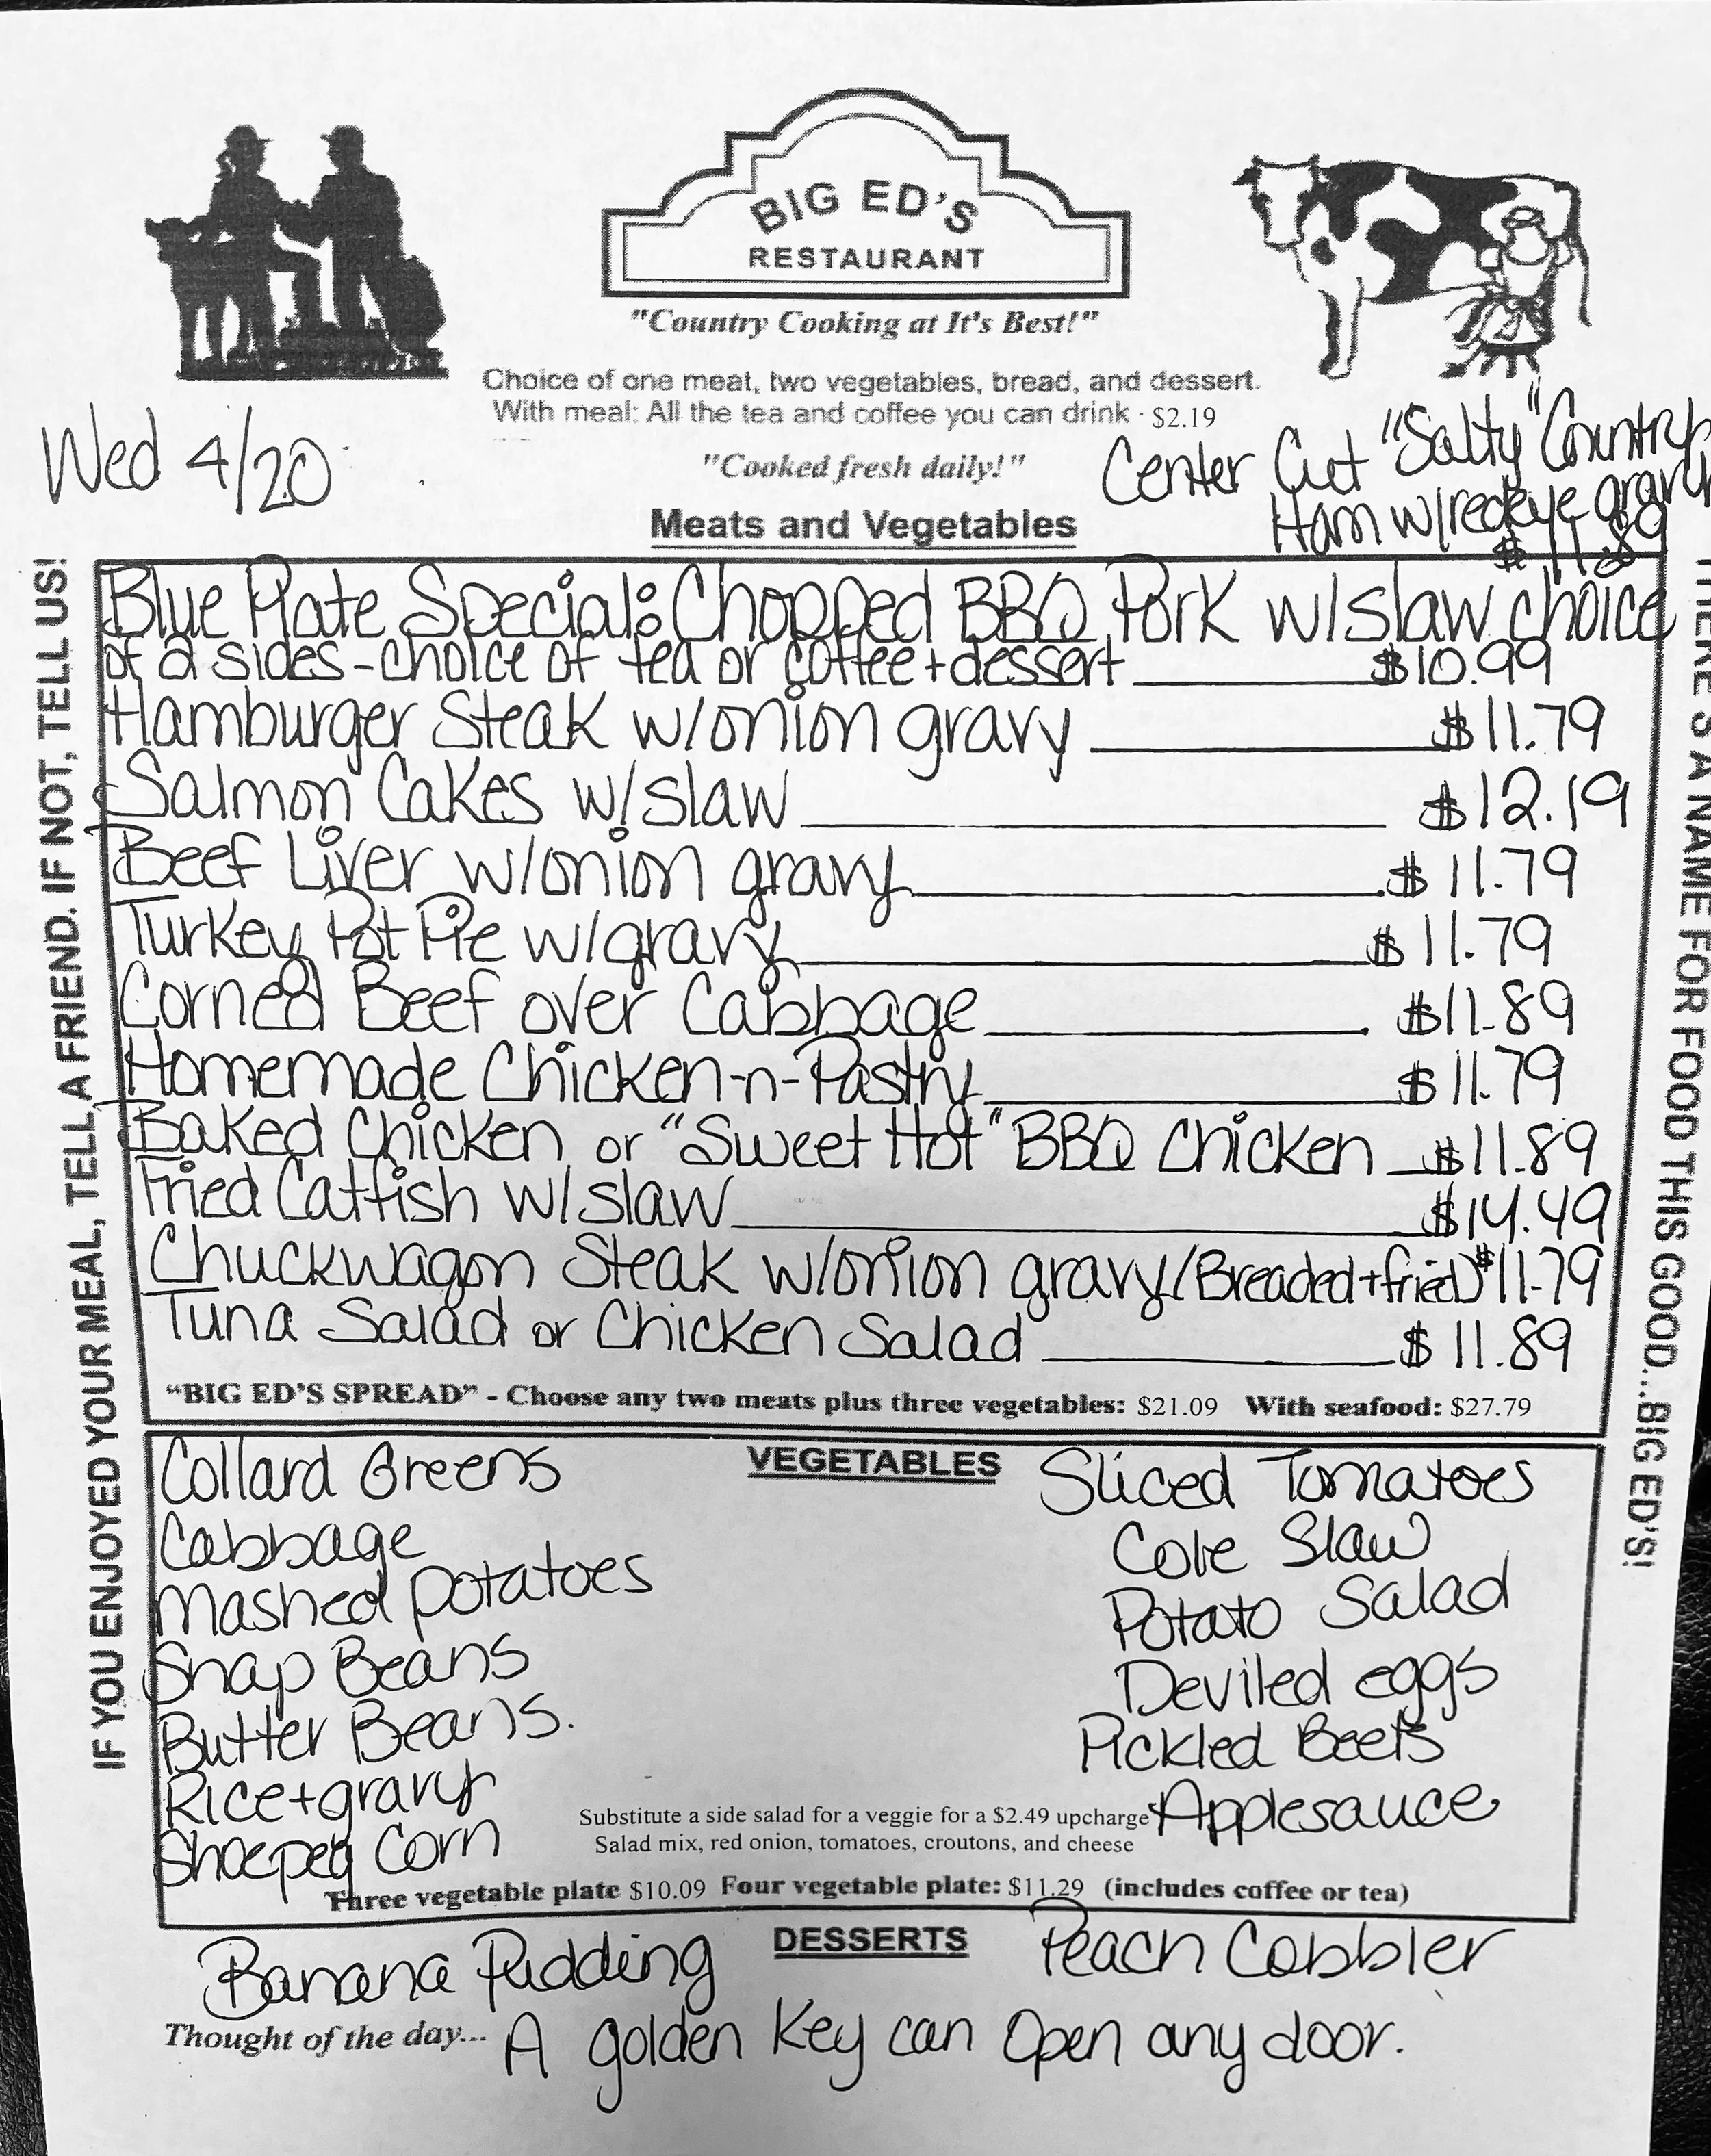 BIG ED'S
RESTAURANT
"Country Cooking at It's Best!"
Choice of one meat, two vegetables, bread, and dessert.
With meal: All the tea and coffee you can drink - $2.19
Wed 4/20
"Cooked fresh daily!"
Center Cut "Salty" Country
Ham w/redeye gravy
$11.89
Meats and Vegetables
Blue Plate Special: Chopped BBQ Pork w/slaw choice
of 2 sides - choice of tea or coffee + dessert $10.99
Hamburger Steak w/onion gravy $11.79
Salmon Cakes w/slaw $12.19
Beef Liver w/onion gravy $11.79
Turkey Pot Pie w/gravy $11.79
Corned Beef over Cabbage $11.89
Homemade Chicken-n-Pastry $11.79
Baked Chicken or "Sweet Hot" BBQ Chicken $11.89
Fried Catfish w/slaw $14.49
Chuckwagon Steak w/onion gravy (Breaded + fried) $11.79
Tuna Salad or Chicken Salad $11.89
"BIG ED'S SPREAD" - Choose any two meats plus three vegetables: $21.09 With seafood: $27.79
VEGETABLES
Collard Greens
Cabbage
Mashed potatoes
Snap Beans
Butter Beans.
Rice + gravy
Shoepeg Corn
Sliced Tomatoes
Cole Slaw
Potato Salad
Deviled eggs
Pickled Beets
Applesauce
Substitute a side salad for a veggie for a $2.49 upcharge
Salad mix, red onion, tomatoes, croutons, and cheese
Three vegetable plate $10.09 Four vegetable plate: $11.29 (includes coffee or tea)
DESSERTS
Banana Pudding
Peach Cobbler
Thought of the day... A golden Key can Open any door.
IF YOU ENJOYED YOUR MEAL, TELL A FRIEND. IF NOT, TELL US!
THERE'S A NAME FOR FOOD THIS GOOD...BIG ED'S!